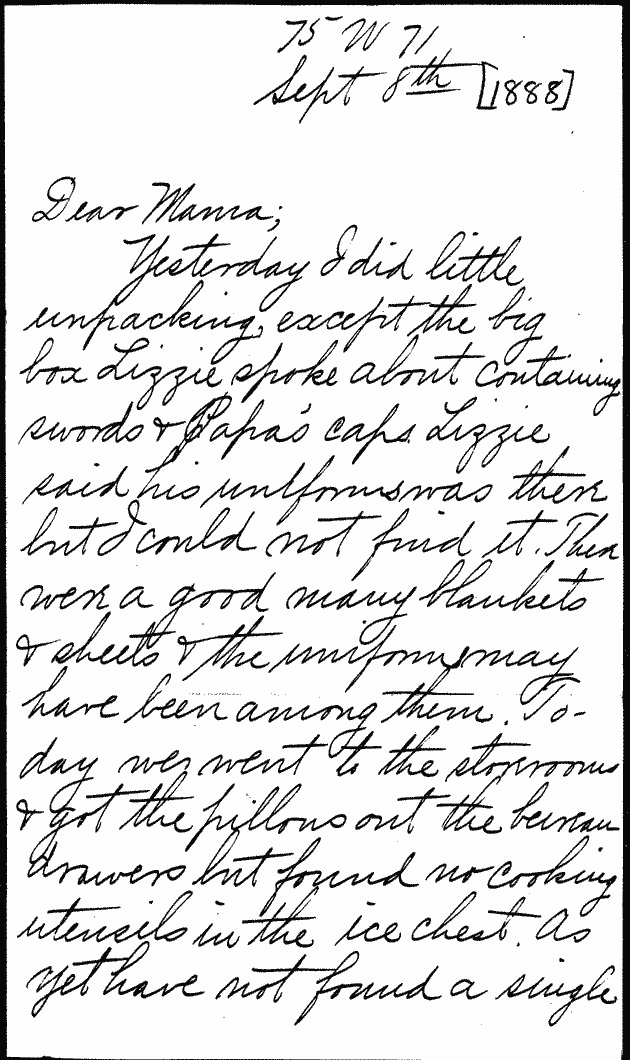 75 W 71
Sept 8th [1888]
Dear Mama;
Yesterday I did little
unpacking, except the big
box Lizzie spoke about containing
swords & Papa's caps. Lizzie
said his uniform was there
but I could not find it. There
were a good many blankets
& sheets & the uniform may
have been among them. To-
day we went to the storerooms
& got the pillows out the bureau
drawers but found no cooking
utensils in the ice chest. As
yet have not found a single